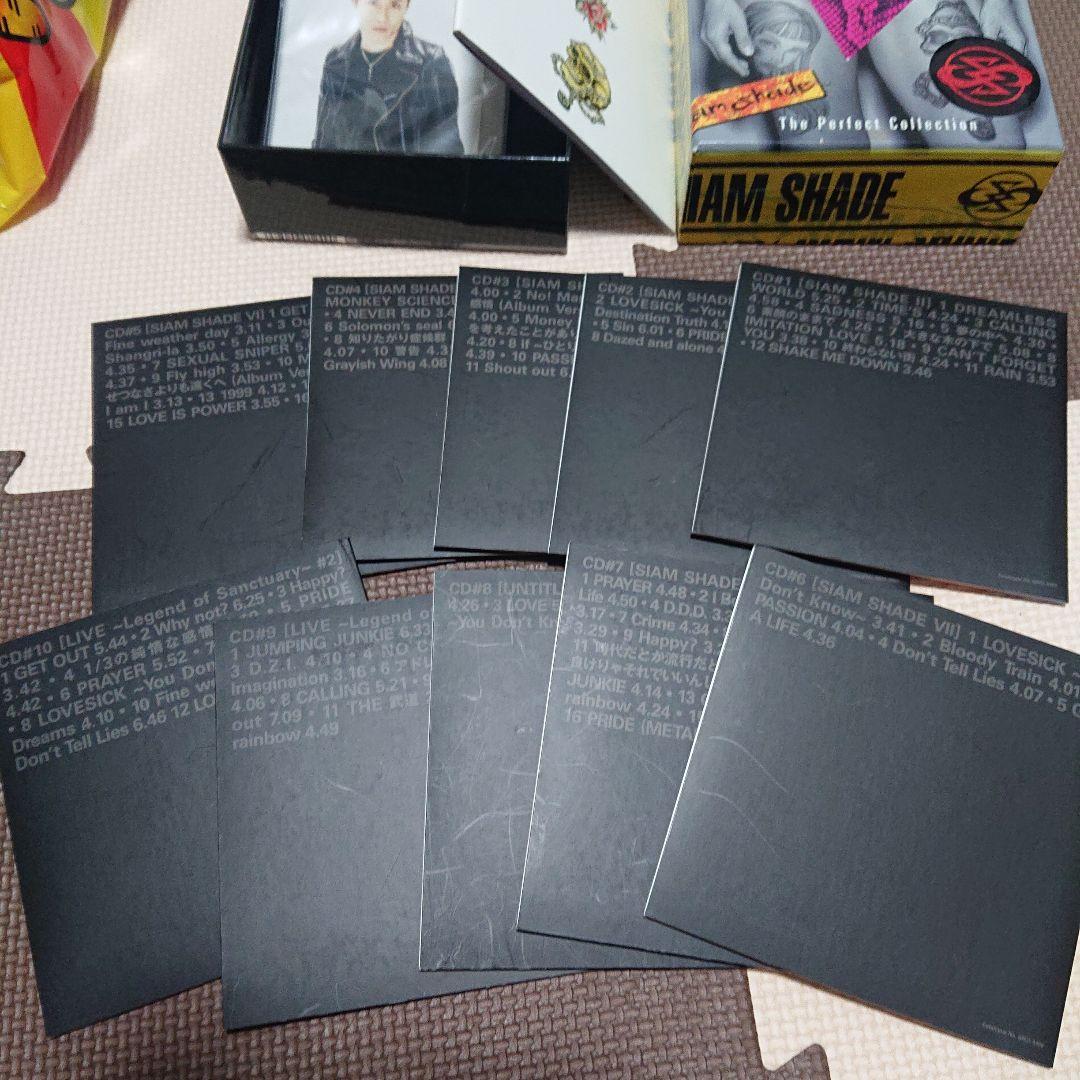 The Perfect Collection
SIAM SHADE
CD#5 [SIAM SHADE VI] 1 GET
Fine weather day 3.11・3
Shangri-la 3.50・5 Allergy
4.35・7 SEXUAL SNIPER
4.37・9 Fly high 3.53・10
せつなさよりも遠くへ (Album Ver
I am I 3.13・13 1999 4.12・
15 LOVE IS POWER 3.55・16
CD#4 [SIAM SHADE
MONKEY SCIENC
・4 NEVER END 3.
6 Solomon's seal
・8 知りたがり症候群
4.07・10 警告 4.3
Grayish Wing 4.08
CD#3 [SIAM SH
4.00・2 No! Ma
感情 (Album Ver
4.00・6 Money
を考えたことがあ
4.20・8 if ~ひとり
4.39・10 PASS
11 Shout out 6
CD#2 [SIAM SHAD
2 LOVESICK ~You
Destination Truth 4.
・5 Sin 6.01・6 PRID
8 Dazed and alone
CD#1 [SIAM SHADE II] 1 DREAMLES
WORLD 5.25・2 TIME'S 4.24・3 CALLING
4.58・4 SADNESS 7.16・5 夢の中へ 4.30
・6 素顔のままで 4.26・7 大きな木の下で 4.08・8
IMITATION LOVE 5.18・9 CAN'T FORGET
YOU 3.38・10 変わらない街 5.24・11 RAIN 3.53
・12 SHAKE ME DOWN 3.46
CD#10 [LIVE ~Legend of Sanctuary~ #2]
1 GET OUT 5.44・2 Why not? 6.25・3 Happy?
3.42・4 1/3の純情な感情 ・5 PRIDE
4.42・6 PRAYER 5.52・7
・8 LOVESICK ~You Don
Dreams 4.10・10 Fine we
Don't Tell Lies 6.46 12 LO
CD#9 [LIVE ~Legend o
1 JUMPING JUNKIE 6.3
3 D.Z.I. 4.10・4 NO
Imagination 3.16・6 アド
4.06・8 CALLING 5.21・9
out 7.09・11 THE 武道
rainbow 4.49
CD#8 [UNTITL
4.26・3 LOVE
~You Don't Kno
CD#7 [SIAM SHADE
1 PRAYER 4.48・2 I
Life 4.50・4 D.D.D. 3.
3.17・7 Crime 4.34
3.29・9 Happy? 3.
11 時代だとか流行だと
良けりゃそれでいいんじ
JUNKIE 4.14・13
rainbow 4.24・15
16 PRIDE (META
CD#6 [SIAM SHADE VII] 1 LOVESICK ~
Don't Know~ 3.41・2 Bloody Train 4.01
PASSION 4.04・4 Don't Tell Lies 4.07・5
A LIFE 4.36